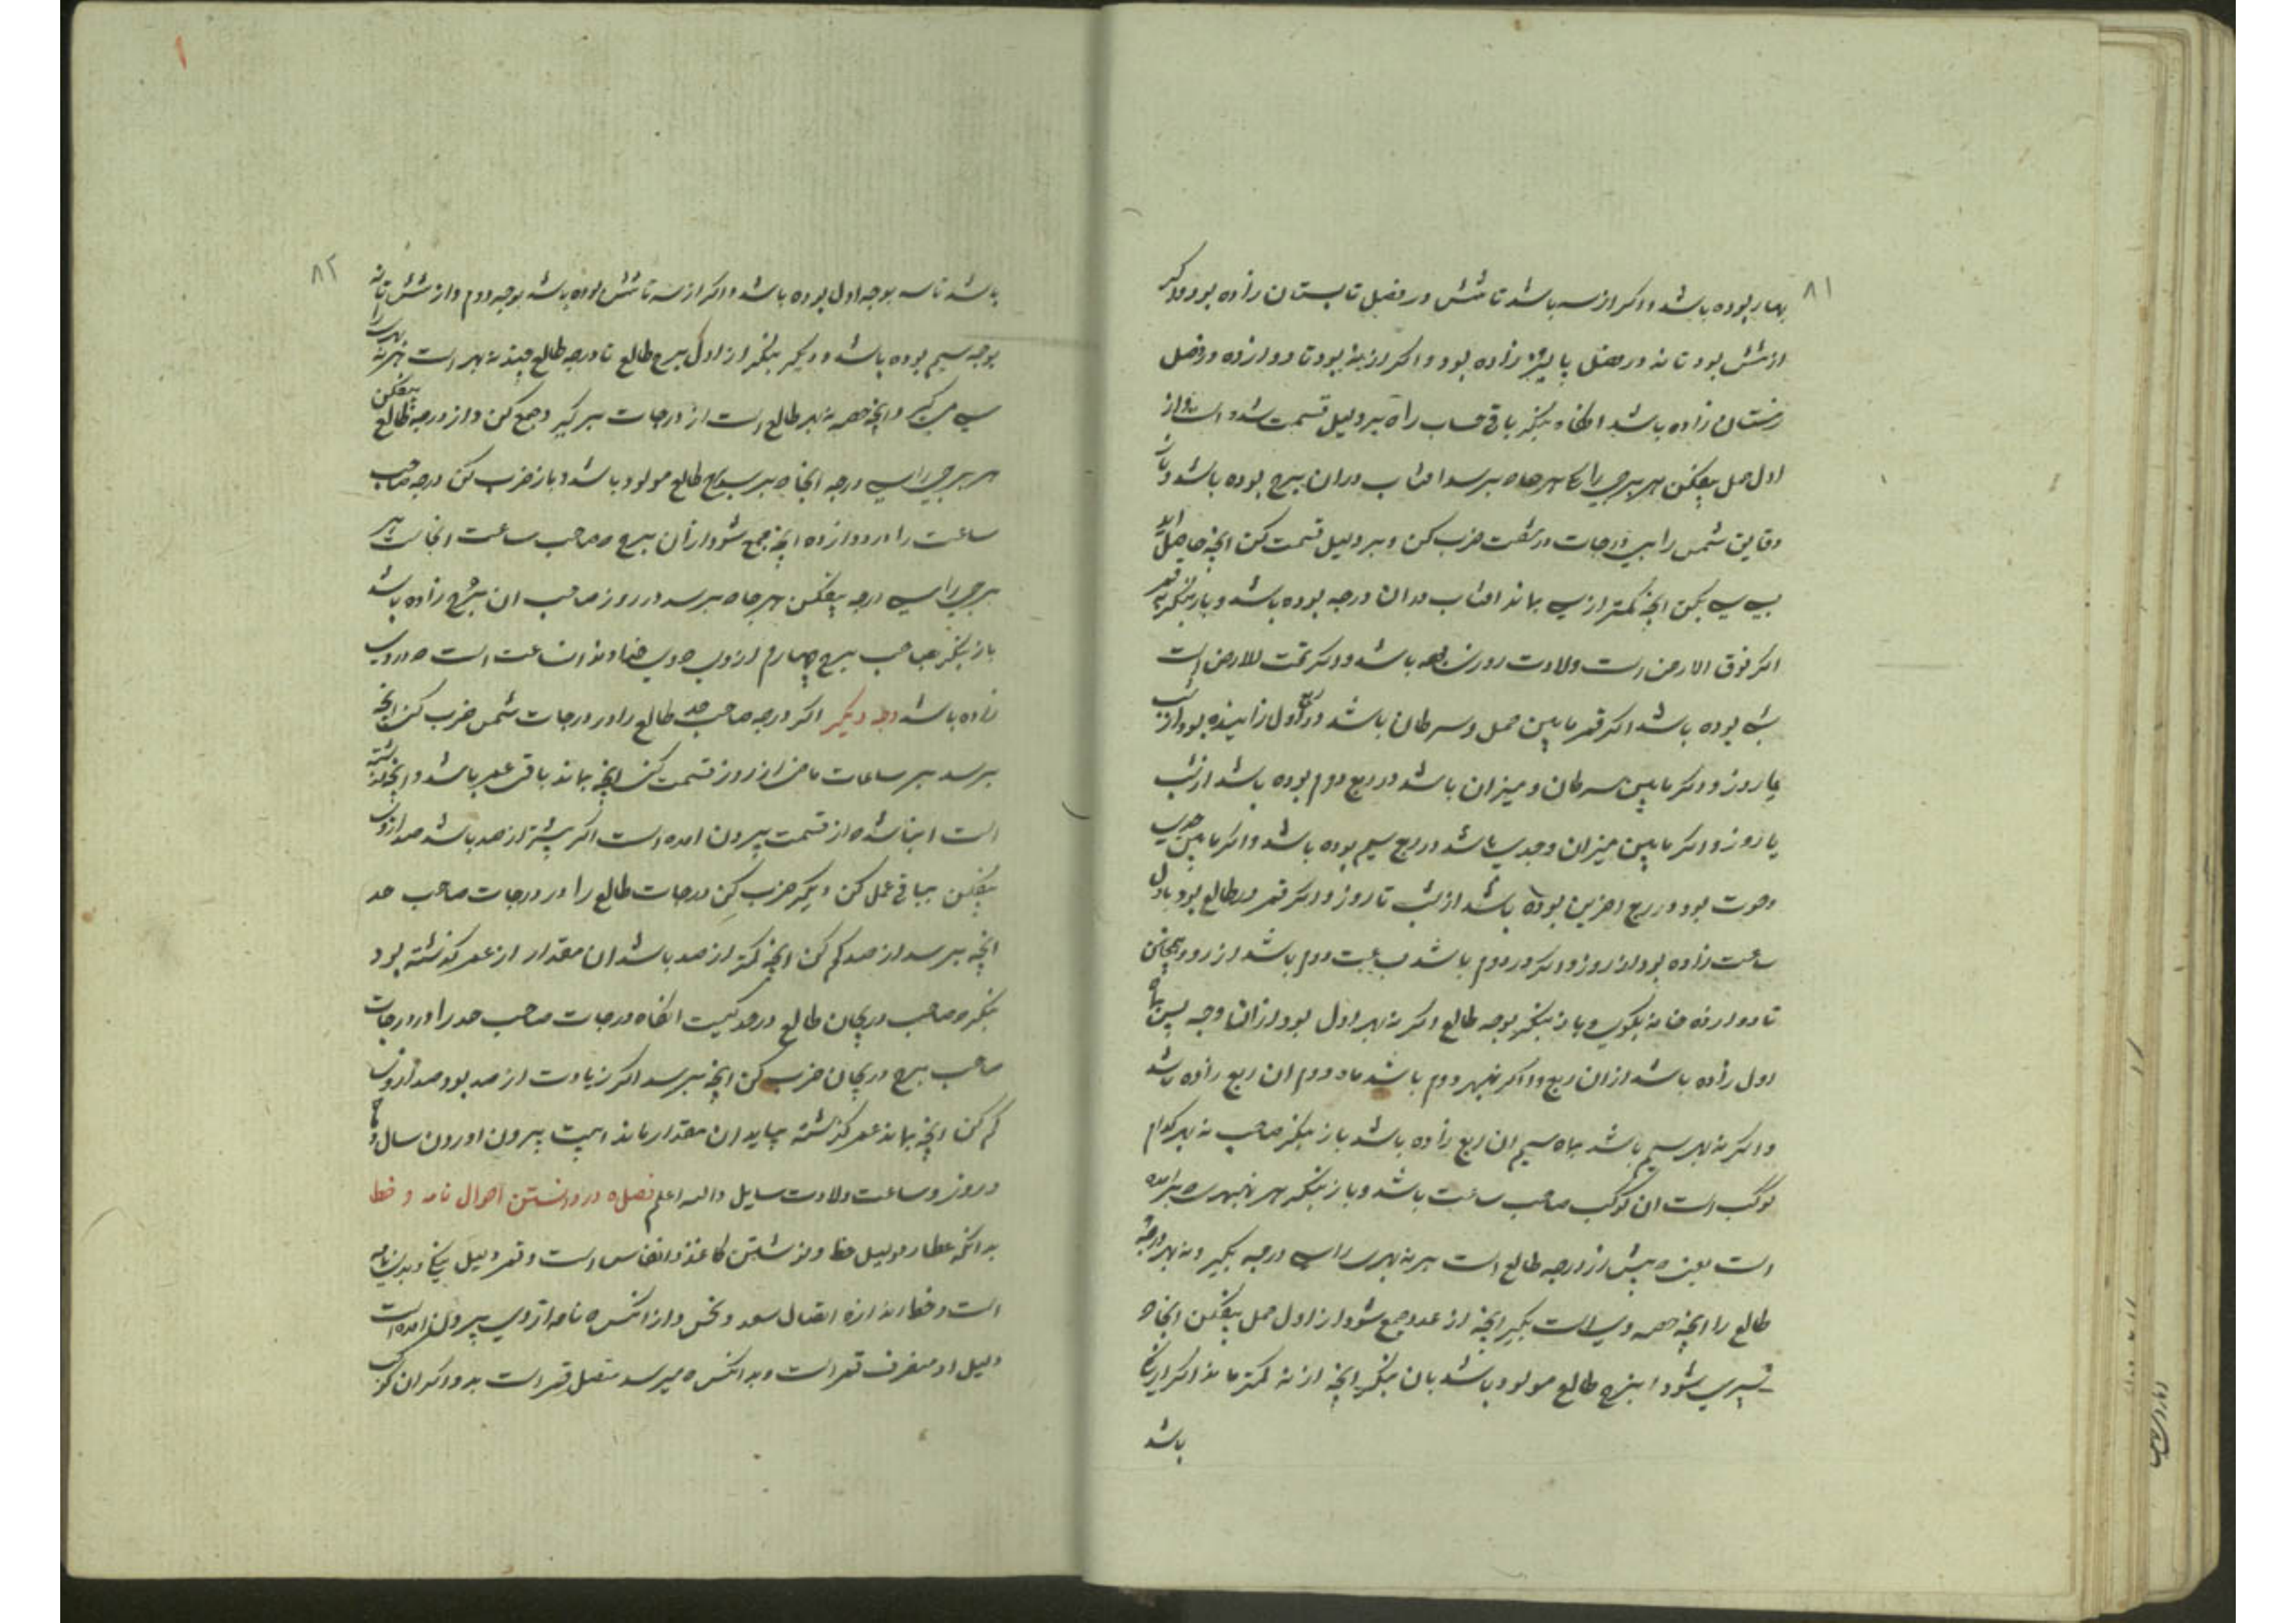 ۸۱
بهار بوده باشد و اکر از سه باشد تا شش در فصل تابستان زاده بود و اکر
از شش بود تا نه در فصل پائیز زاده بود و اکر از نه بود تا دوازده در فصل
زمستان زاده باشد انکاه بنکر باقی حساب راه بر دلیل قسمت شده است از
اول حمل بیفکن هر برجی را هر جاه برسد افتاب دران برج بوده باشد و باز
دقایق شمس را بی درجات در شصت ضرب کن و بر دلیل قسمت کن انچه حاصل اید
سی سی بکن انچه کمتر از سی بماند افتاب دران درجه بوده باشد و باز بنکر قمر
اکر فوق الارض است ولادت روز بوده باشد و اکر تحت الارض است
شب بوده باشد اکر قمر مابین حمل و سرطان باشد در ربع اول زاینده بود از شب
یا روز و اکر مابین سرطان و میزان باشد در ربع دوم بوده باشد از شب
یا روز و اکر مابین میزان و جدی باشد در ربع سیم بوده باشد و اکر مابین جدی
و حوت بود در ربع اخرین بوده باشد از شب تا روز و اکر قمر در طالع بود باول
ساعت زاده بود از روز و اکر در دوم باشد بساعت دوم باشد از روز و همچنین
تا دوازده خانه بکوی و باز بنکر بوجه طالع اکر نه بهر اول بود از ان وجه پس بماه
اول زاده باشد از ان ربع و اکر نه بهر دوم باشد ماه دوم ان ربع زاده باشد
و اکر نه بهر سیم باشد بماه سیم ان ربع زاده باشد باز بنکر صاحب نه بهر کدام
کوکب است ان کوکب صاحب ساعت باشد و باز بنکر هر نه بهری که برامده
است یعنی پیش از درجه طالع است هر نه بهری را سی درجه بکیر و نه بهر درجه
طالع را انچه حصه وی است بکیر انچه از عدد جمع شود از اول حمل بیفکن انجا که
سپری شود ان برج طالع مولود باشد بان بنکر انچه از نه کمتر ماند اکر از یکی
باشد
۸۲
باشد تا سه بوجه اول بوده باشد و اکر از سه تا شش بوده باشد بوجه دوم و از شش تا نه
بوجه سیم بوده باشد و دیکر بنکر از اول برج طالع تا درجه طالع چند نه بهر است هر نه بهری را
سی می کیر و انچه حصه نه بهر طالع است از درجات برکیر و جمع کن و از درجه طالع بیفکن
هر برجی را سی درجه انجا که برسد ان برج طالع مولود باشد و باز ضرب کن درجه صاحب
ساعت را در دوازده انچه جمع شود از ان برج صاحب ساعت انجاست هر
برجی را سی درجه بیفکن هر جاه برسد در روز صاحب ان برج زاده باشد
باز بنکر صاحب برج چهارم از وی خداوند ان ساعت است که در وی
زاده باشد وجه دیکر اکر درجه صاحب حد طالع را در درجات شمس ضرب کن انچه
برسد بر ساعات ماضی از روز قسمت کن انچه بماند باقی عمر باشد و انچه کذشته
است انباشد که از قسمت بیرون امده است اکر بیشتر از صد باشد صد از وی
بیفکن بباقی عمل کن دیکر ضرب کن درجات طالع را در درجات صاحب حد
انچه برسد از صد کم کن انچه کمتر از صد باشد ان مقدار از عمر کذشته بود
بنکر صاحب دریجان طالع در حد کیست انکاه درجات صاحب حد را در درجات
صاحب برج دریجان ضرب کن انچه برسد اکر زیادت از صد بود صد از وی
کم کن انچه بماند عمر کذشته بیاید ان مقدار ماند اینست بیرون اوردن سال و ماه
و روز و ساعت ولادت سایل والله اعلم فصل در دانستن احوال نامه و خط
بدانکه عطارد دلیل خط و نوشتن کاغذ و انفاس است و قمر دلیل پیک و بدن نامه
است و خط اندازه اتصال سعد و نحس و از انکس که نامه از وی بیرون امده است
دلیل او منصرف قمر است و بد انکس که میرسد متصل قمر است بدو اکر ان کوکب